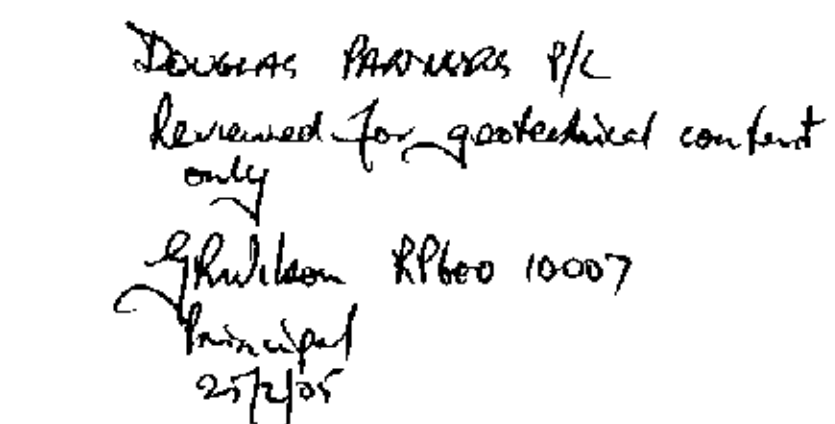 DOUGLAS PARTNERS P/L
Reviewed for geotechnical content
only
GRWilson RPGeo 10007
Principal
25/2/05